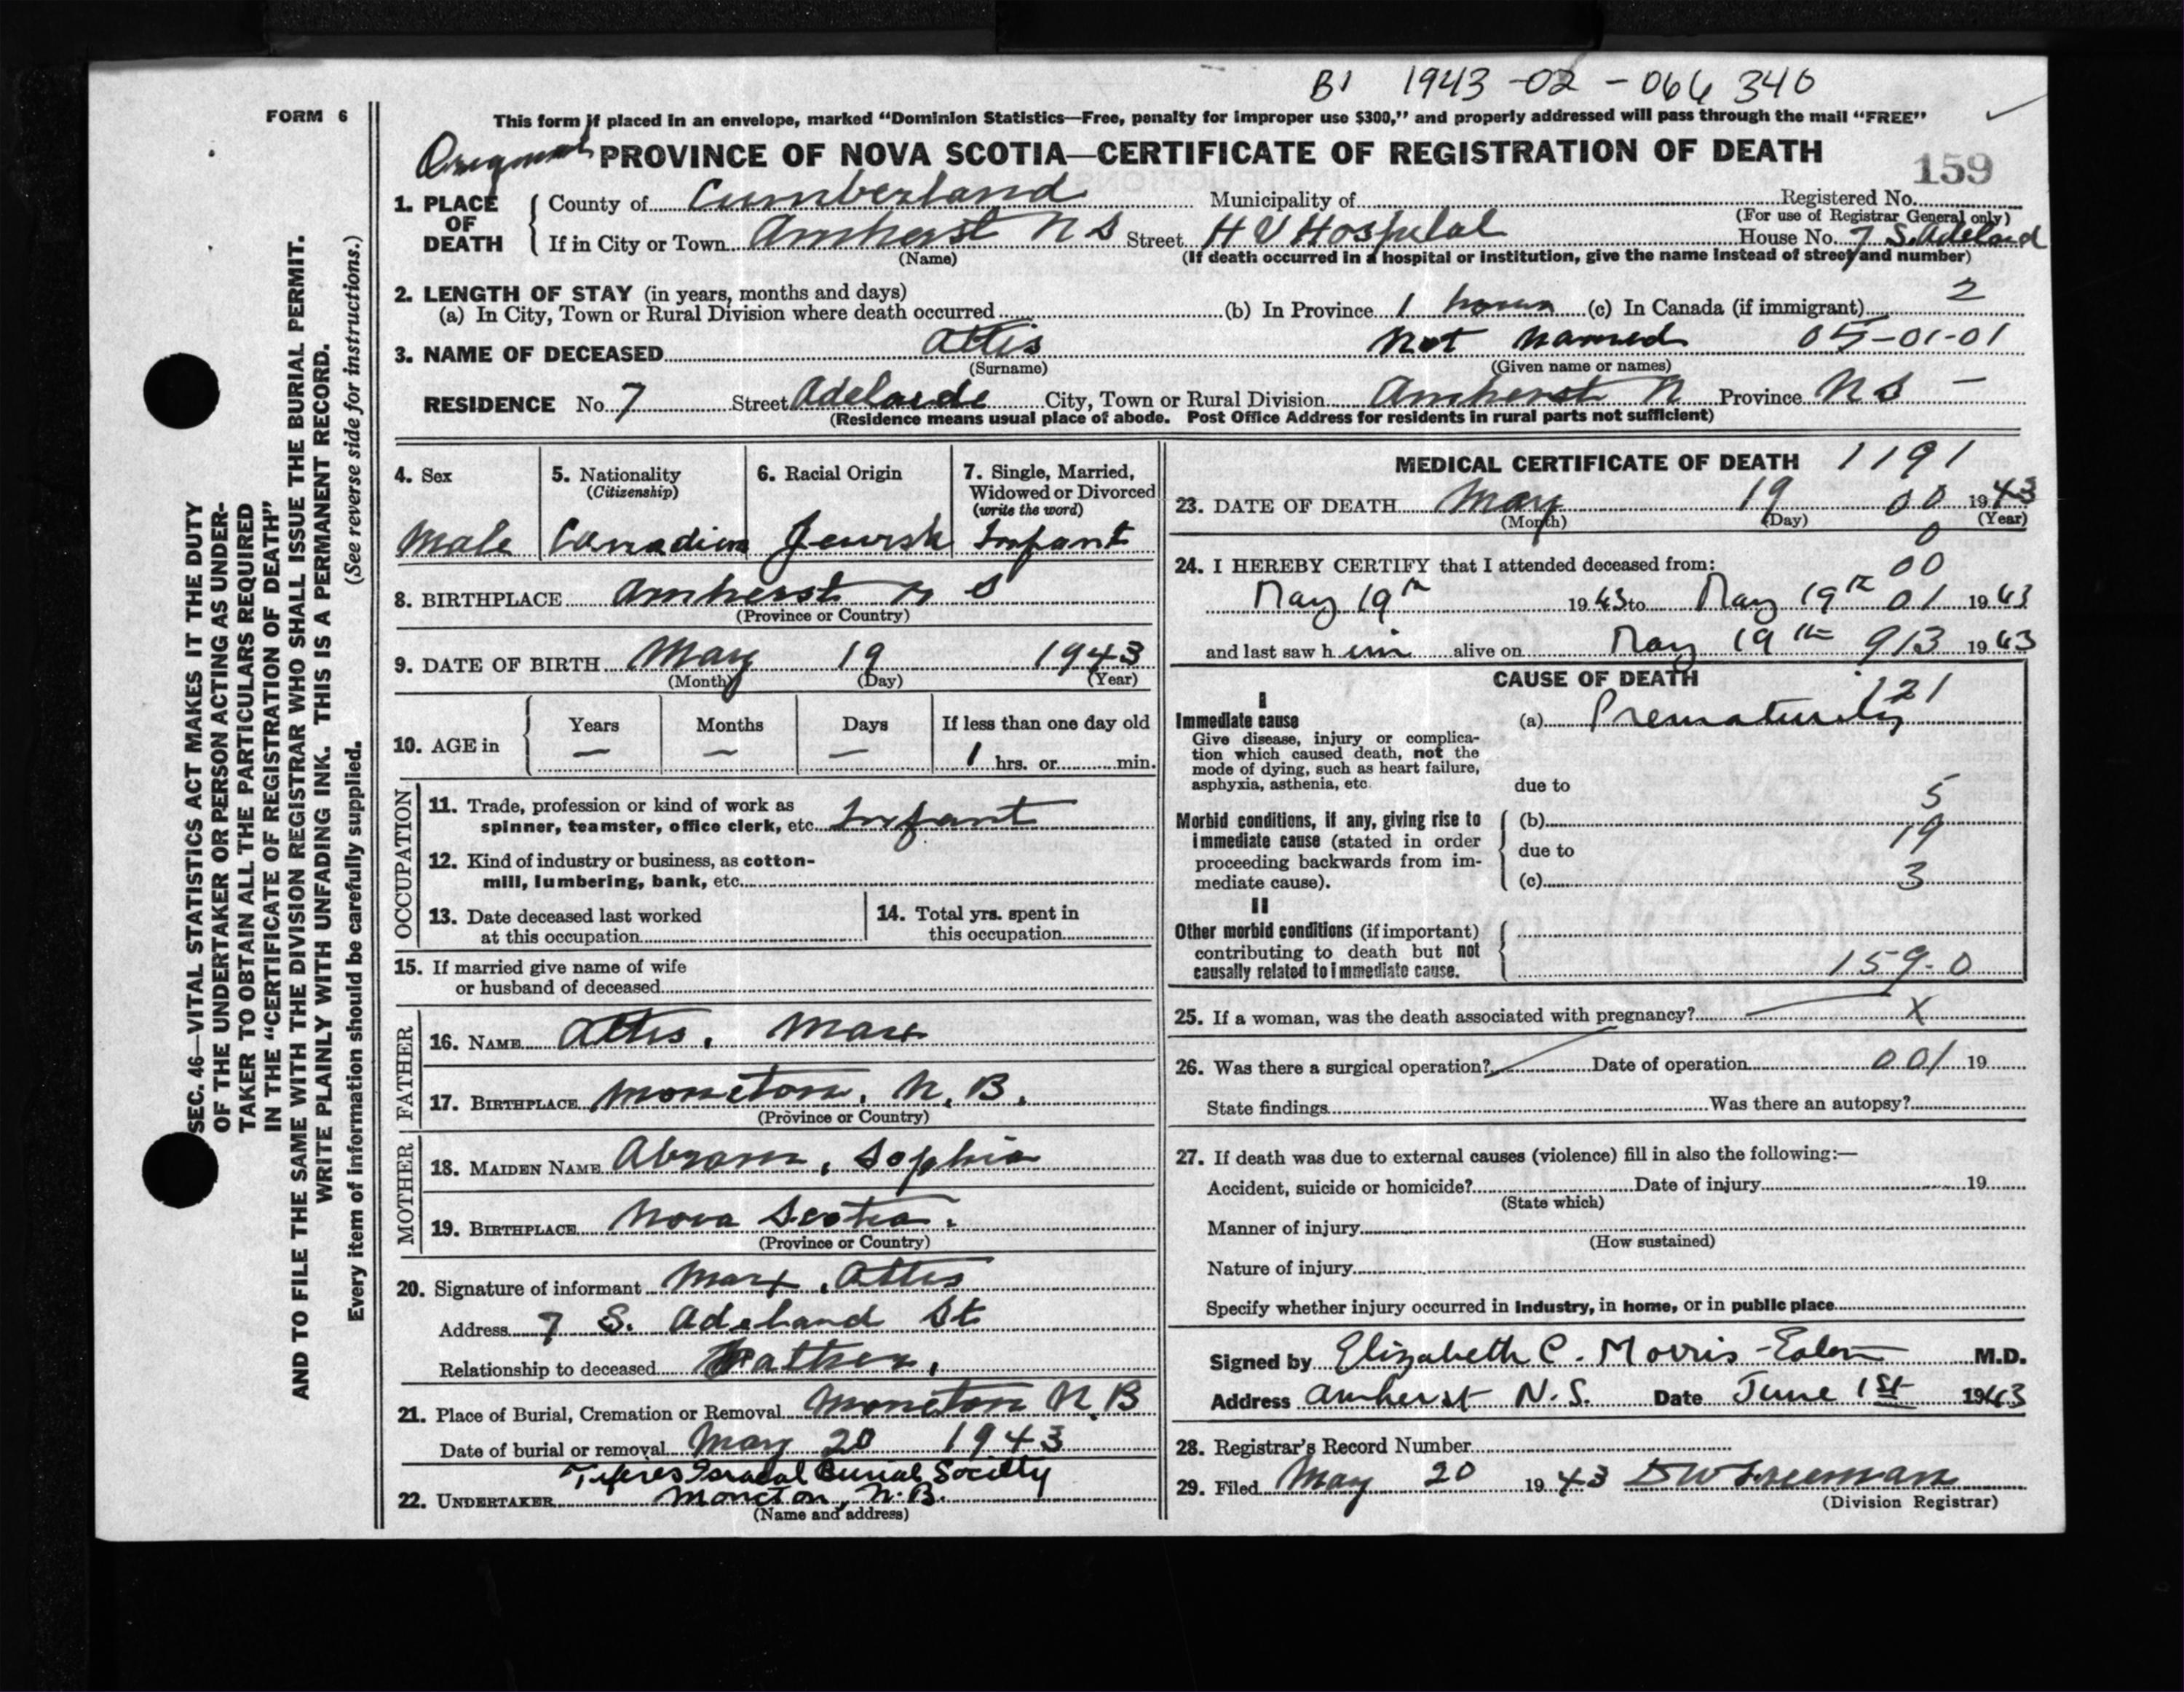 B1 1943-02-066340
FORM 6
This form if placed in an envelope, marked “Dominion Statistics—Free, penalty for improper use $300,” and properly addressed will pass through the mail “FREE”
Original PROVINCE OF NOVA SCOTIA—CERTIFICATE OF REGISTRATION OF DEATH
159
1. PLACE OF DEATH
County of Cumberland Municipality of Registered No.
(For use of Registrar General only)
If in City or Town Amherst N S Street H V Hospital House No. 7 S. Adeland
(Name) (If death occurred in a hospital or institution, give the name instead of street and number)
2. LENGTH OF STAY (in years, months and days)
(a) In City, Town or Rural Division where death occurred (b) In Province 1 hour (c) In Canada (if immigrant) 2
3. NAME OF DECEASED Attis Not named 05-01-01
(Surname) (Given name or names)
RESIDENCE No. 7 Street Adelaide City, Town or Rural Division Amherst N Province N S —
(Residence means usual place of abode. Post Office Address for residents in rural parts not sufficient)
4. Sex
Male
5. Nationality
(Citizenship)
Canadian
6. Racial Origin
Jewish
7. Single, Married,
Widowed or Divorced
(write the word)
Infant
8. BIRTHPLACE Amherst N S
(Province or Country)
9. DATE OF BIRTH May 19 1943
(Month) (Day) (Year)
10. AGE in Years Months Days If less than one day old
— — — 1 hrs. or min.
OCCUPATION
11. Trade, profession or kind of work as
spinner, teamster, office clerk, etc. Infant
12. Kind of industry or business, as cotton-
mill, lumbering, bank, etc.
13. Date deceased last worked
at this occupation
14. Total yrs. spent in
this occupation
15. If married give name of wife
or husband of deceased
FATHER
16. NAME Attis, Max
17. BIRTHPLACE Moncton, N.B.
(Province or Country)
MOTHER
18. MAIDEN NAME Abram, Sophia
19. BIRTHPLACE Nova Scotia.
(Province or Country)
20. Signature of informant Max Attis
Address 7 S. Adeland St
Relationship to deceased Father,
21. Place of Burial, Cremation or Removal Moncton N.B
Date of burial or removal May 20 1943
Tiferes Israel Burial Society
22. UNDERTAKER Moncton, N.B.
(Name and address)
MEDICAL CERTIFICATE OF DEATH 1191
23. DATE OF DEATH May 19 00 1943
(Month) (Day) (Year)
0
24. I HEREBY CERTIFY that I attended deceased from: 00
May 19th 1943 to May 19th 01 1943
and last saw h im alive on May 19th 913 1943
CAUSE OF DEATH
121
I
Immediate cause
Give disease, injury or complica-
tion which caused death, not the
mode of dying, such as heart failure,
asphyxia, asthenia, etc.
(a) Prematurity
due to
5
Morbid conditions, if any, giving rise to
immediate cause (stated in order
proceeding backwards from im-
mediate cause).
(b)
19
due to
(c) 3
II
Other morbid conditions (if important)
contributing to death but not
causally related to immediate cause.
159-0
25. If a woman, was the death associated with pregnancy? — X
26. Was there a surgical operation? Date of operation 001 19
State findings Was there an autopsy?
27. If death was due to external causes (violence) fill in also the following:—
Accident, suicide or homicide? Date of injury 19
(State which)
Manner of injury
(How sustained)
Nature of injury
Specify whether injury occurred in industry, in home, or in public place
Signed by Elizabeth C. Morris-Eaton M.D.
Address Amherst N.S. Date June 1st 1943
28. Registrar's Record Number
29. Filed May 20 1943 Freeman
(Division Registrar)
SEC. 46—VITAL STATISTICS ACT MAKES IT THE DUTY
OF THE UNDERTAKER OR PERSON ACTING AS UNDER-
TAKER TO OBTAIN ALL THE PARTICULARS REQUIRED
IN THE “CERTIFICATE OF REGISTRATION OF DEATH”
AND TO FILE THE SAME WITH THE DIVISION REGISTRAR WHO SHALL ISSUE THE BURIAL PERMIT.
WRITE PLAINLY WITH UNFADING INK. THIS IS A PERMANENT RECORD.
Every item of information should be carefully supplied. (See reverse side for instructions.)